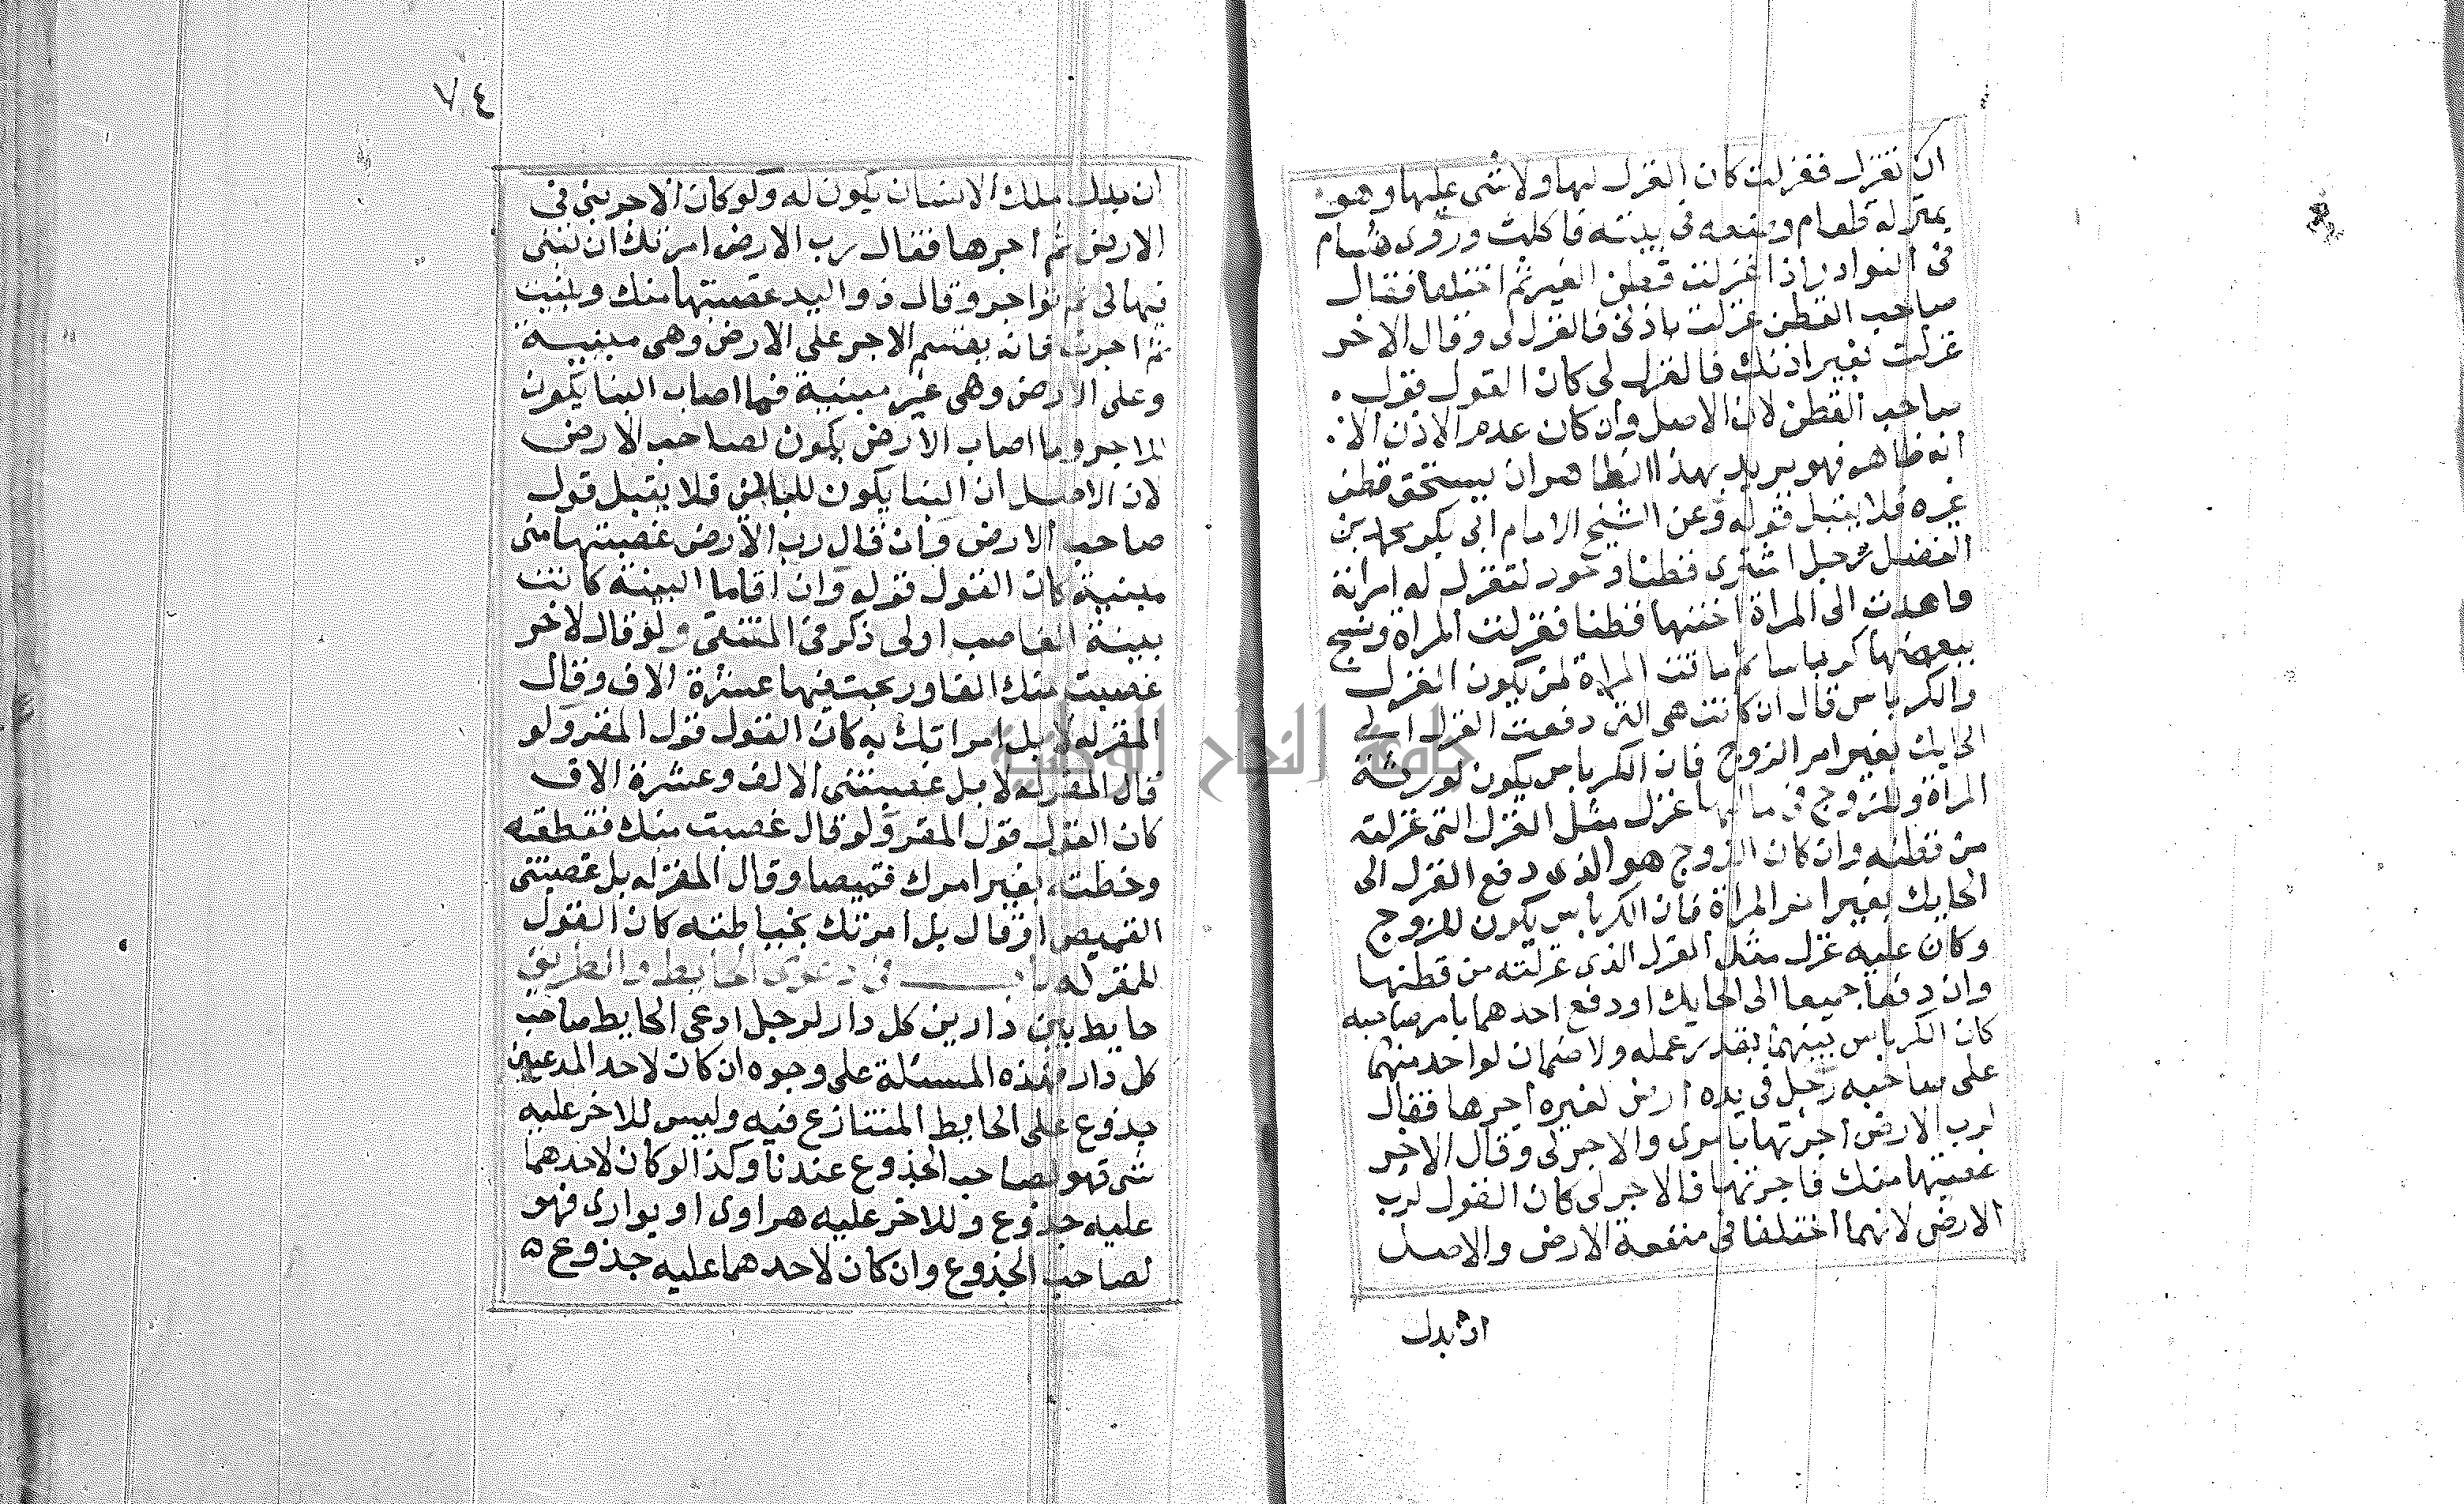 ان تغزل فغزلت كان الغزل لها ولا شى عليها وهو
بمنزلة طعام وضعه فى بيته فاكلت وروى هشام
فى النوادر اذا غزلت قطن الغير ثم اختلفا فقال
صاحب القطن غزلت باذنى فالغزل لى وقال الاخر
غزلت بغير اذنك فالغزل لى كان القول قول
صاحب القطن لان الاصل وان كان عدم الاذن الا
انه ظاهر فهو يريد بهذا الظاهر ان يستحق قطن
غيره فلا يقبل قوله وعن الشيخ الامام ابى بكر محمد بن
الفضل رجل اشترى قطنا لتغزل له امراته
واهدت الى المراة اختها قطنا فغزلت المراة ونسج
ببعضها كرباسا ثم ماتت المراة لمن يكون الغزل
والكرباس قال ان كانت هى التى دفعت الغزل الى
الحايك بغير امر الزوج فان الكرباس يكون لورثة
المراة وللزوج فى مالها غزل مثل الغزل التى غزلته
من قطنه وان كان الزوج هو الذى دفع الغزل الى
الحايك بغير امر المراة فان الكرباس يكون للزوج
وكان عليه غزل مثل الغزل الذى غزلته من قطنها
وان دفعا جميعا الى الحايك او دفع احدهما بامر صاحبه
كان الكرباس بينهما بقدر عمله ولا ضمان لواحد منهما
على صاحبه رجل فى يده ارض لغيره اجرها فقال
لرب الارض اجرتها بامرى والاجر لى وقال الاخر
غصبتها منك فاجرتها فالاجر لى كان القول لرب
الارض لانهما اختلفا فى منفعة الارض والاصل
ان بدل
٧٤
ان بدل ملك الانسان يكون له ولو كان الاجر بنى فى
الارض ثم اجرها فقال رب الارض امرتك ان تبنى
فيها لى ثم تواجر وقال ذو اليد غصبتها منك وبنيت
ثم اجرت فانه يقسم الاجر على الارض وهى مبنية
وعلى الارض وهى غير مبنية فما اصاب البنا يكون
للاجر وما اصاب الارض يكون لصاحب الارض
لان الاصل ان البنا يكون للبانى فلا يقبل قول
صاحب الارض وان قال رب الارض غصبتها منى
مبنية كان القول قوله وان اقاما البينة كانت
بينة الغاصب اولى ذكر فى المنتقى ولو قال لاخر
غصبت منك الفا وربحت فيها عشرة الاف وقال
المقر له لا بل امرتك به كان القول قول المقر ولو
قال المقر له لا بل غصبتنى الالف وعشرة الاف
كان القول قول المقر ولو قال غصبت منك فقطعته
وخطته بغير امرك قميصا وقال المقر له بل غصبتنى
القميص او قال بل امرتك بخياطته كان القول
للمقر له باب فى دعوى الحايط والطريق
حايط بين دارين كل دار لرجل ادعى الحايط صاحب
كل دار فهذه المسئلة على وجوه ان كان لاحد المدعيين
جذوع على الحايط المتنازع فيه وليس للاخر عليه
شى فهو لصاحب الجذوع عندنا وكذا لو كان لاحدهما
عليه جذوع وللاخر عليه هراوى او بوارى فهو
لصاحب الجذوع وان كان لاحدهما عليه جذوع
جامعة النجاح الوطنية